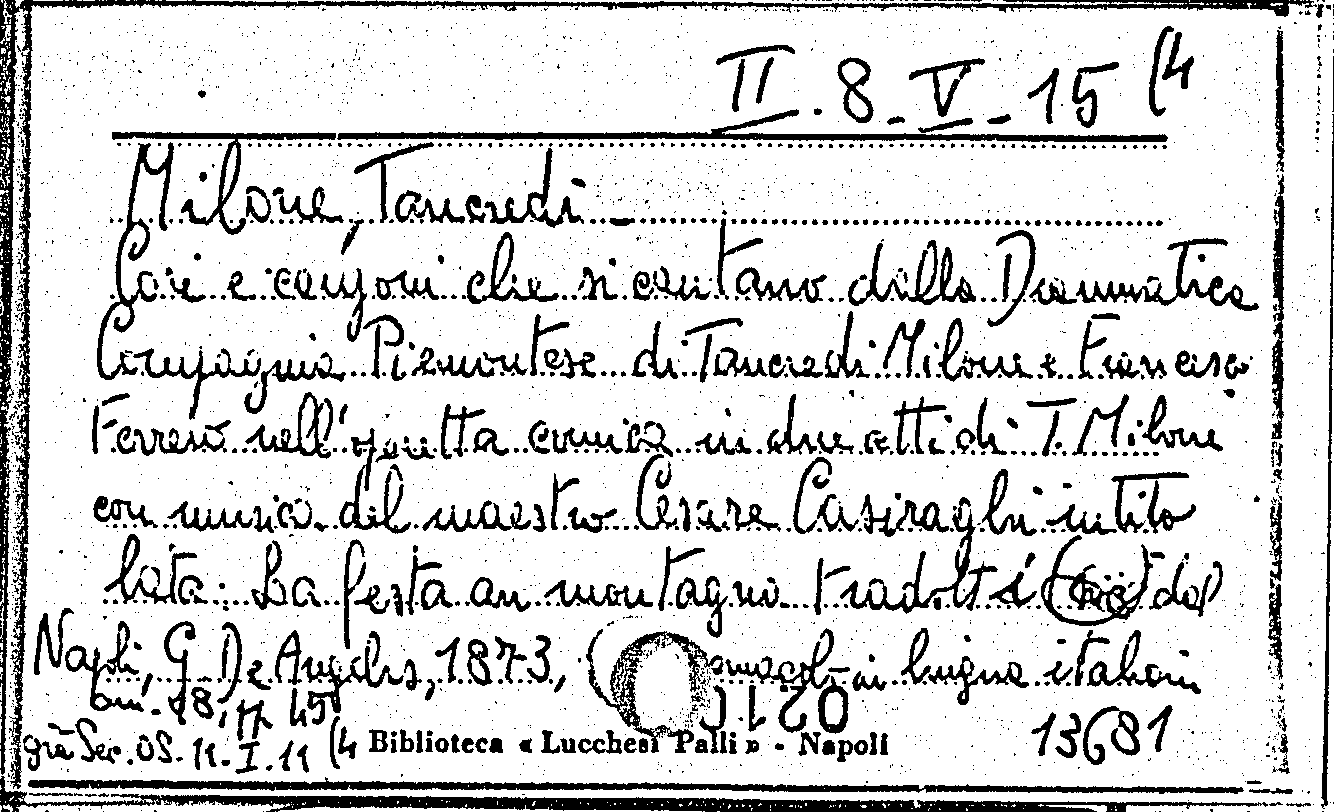 II.8-V-15(4
Milone, Tancredi -
Cori e canzoni che si cantano dalla Drammatica
Compagnia Piemontese di Tancredi Milone e Francesco
Ferrero nell'operetta comica in due atti di T. Milone
con musica del maestro Cesare Casiraghi intito
lata: La festa an montagna tradotti (sic) dal
Napoli, G. De Angelis, 1873, in lingua italiana
cm. 18, pp. 45
già Sec. OS. 11-I.11 (4 Biblioteca « Lucchesi Palli » - Napoli 13681